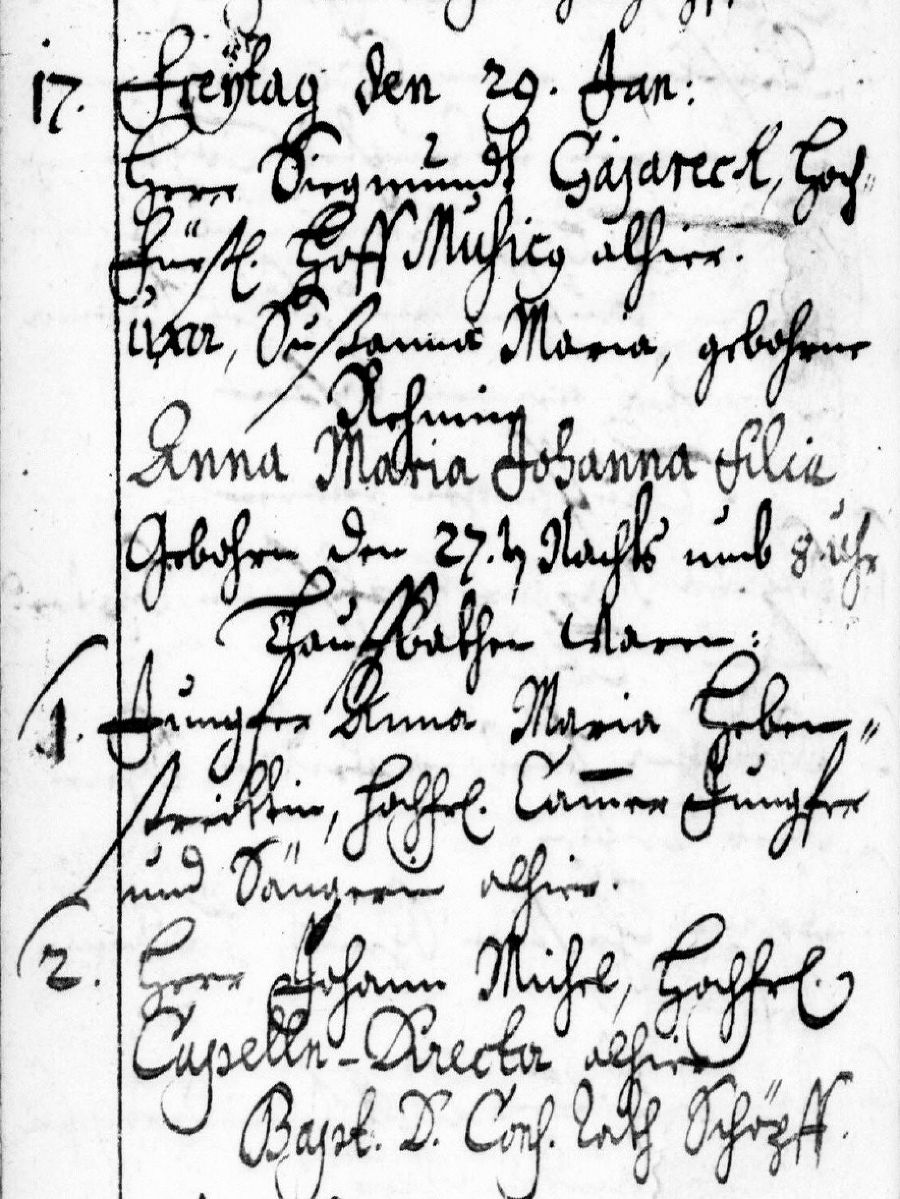 17. Freÿtag den 29. Jan:
Herr Siegmundt Gajareck, Hoch„
Fürstl. Hoff Musicq alhier.
Uxor, Susanna Maria, gebohrne
Rehmin
Anna Maria Johanna filia
Gebohrn den 27. Nachts umb 8 Uhr
Tauffbathen waren:
1. Jungfer Anna Maria Heben„
streittin, hochfrl. Cam̄er Jungfer
und Sängerin alhier.
2. Herr Johann Michel, Hochfrl.
Capelln-Director alhier
Bapt. D. Schöpff.